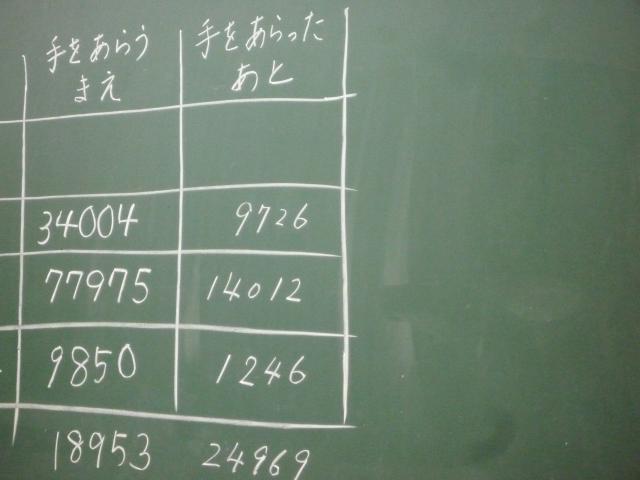 手をあらう
まえ
手をあらった
あと
34004 9726
77975 14012
9850 1246
18953 24969